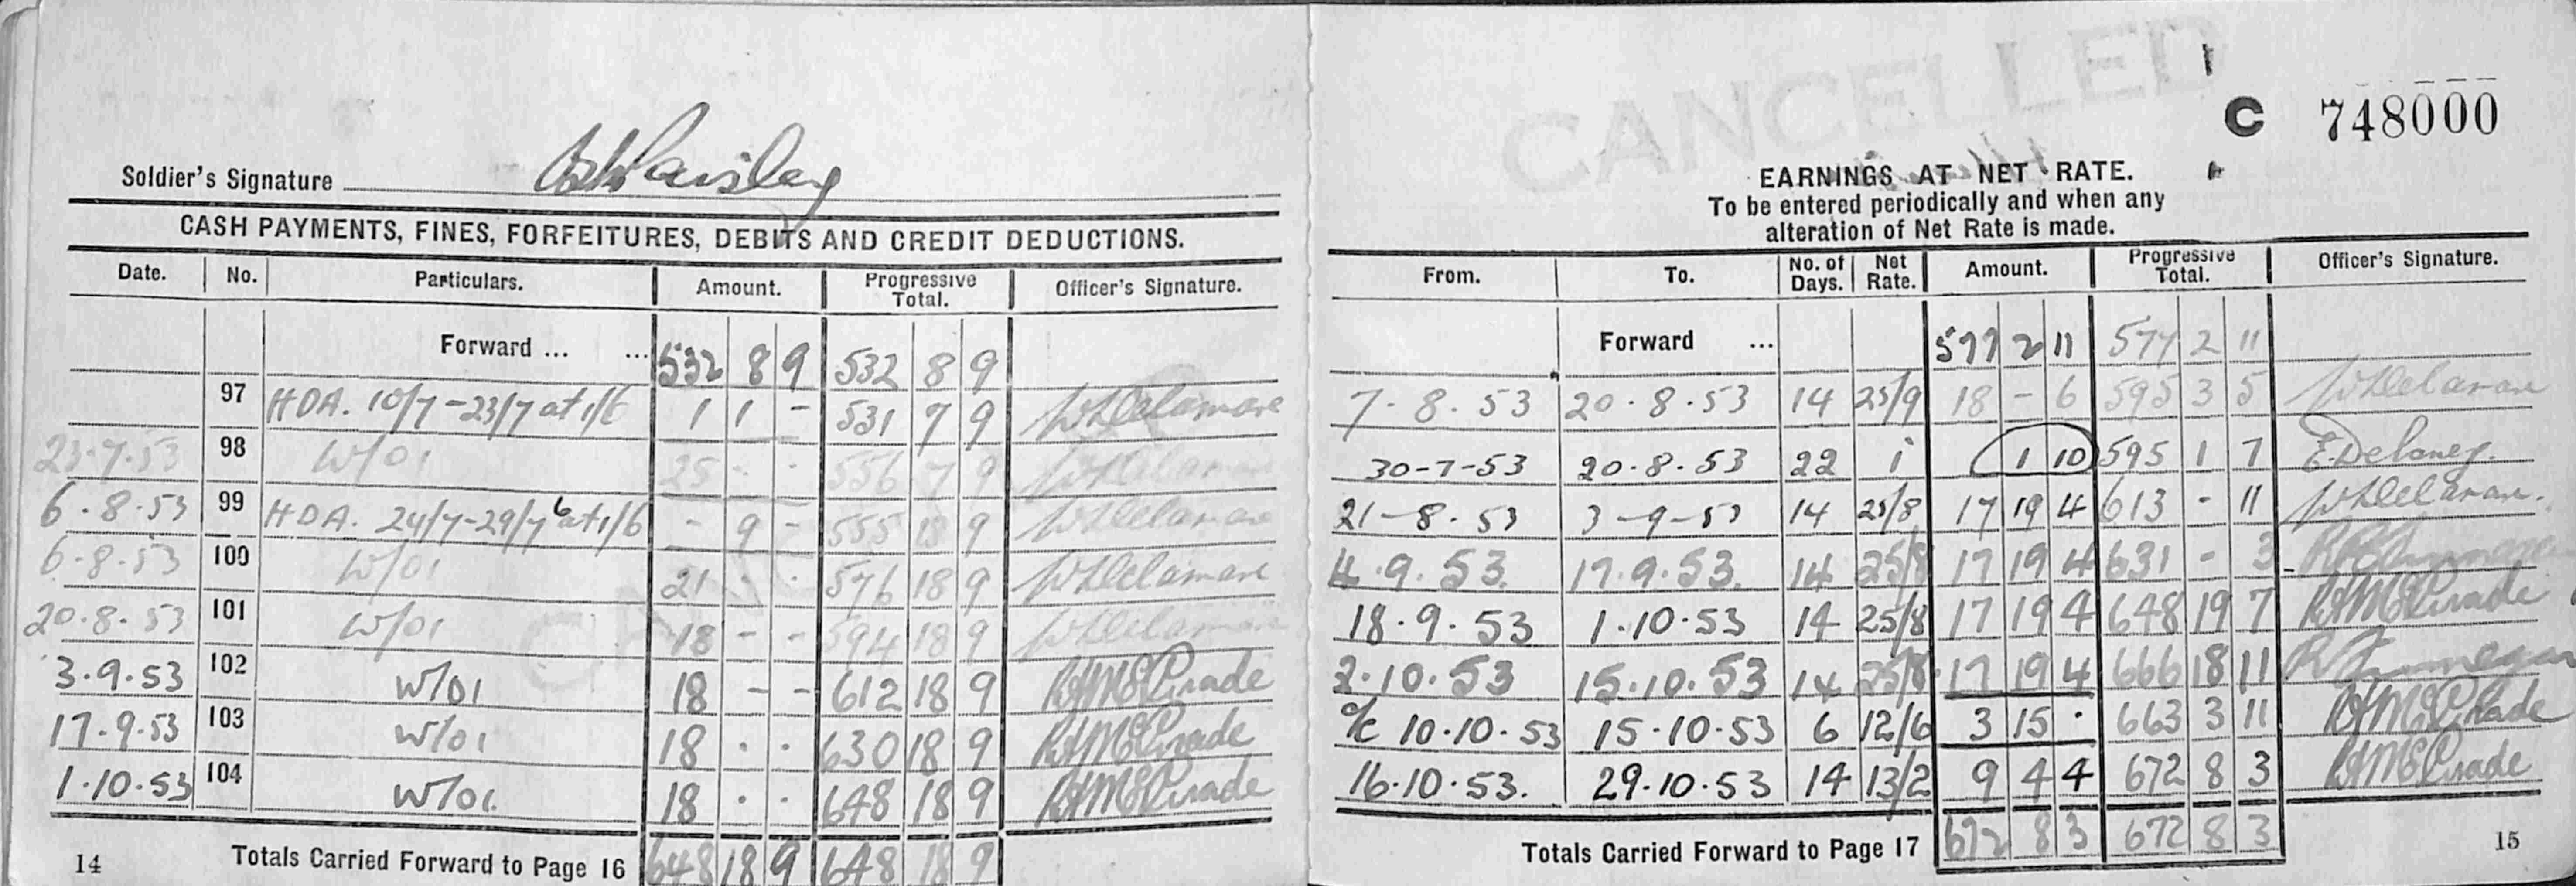 Soldier's Signature
CASH PAYMENTS, FINES, FORFEITURES, DEBITS AND CREDIT DEDUCTIONS.
Date. No. Particulars. Amount. Progressive Total. Officer's Signature.
Forward ... ... 532 8 9 532 8 9
97 HDA. 10/7-23/7 at 1/6 1 1 - 531 7 9 
23.7.53 98 W/01 25 - - 556 7 9
6.8.53 99 HDA. 24/7-29/7 6 at 1/6 - 9 - 555 18 9
6.8.53 100 W/01 21 - - 576 18 9
20.8.53 101 W/01 18 - - 594 18 9
3.9.53 102 W/01 18 - - 612 18 9
17.9.53 103 W/01 18 . . 630 18 9
1.10.53 104 W/01. 18 . . 648 18 9
14 Totals Carried Forward to Page 16 648 18 9 648 18 9
CANCELLED
C 748000
EARNINGS AT NET RATE.
To be entered periodically and when any
alteration of Net Rate is made.
From. To. No. of Days. Net Rate. Amount. Progressive Total. Officer's Signature.
Forward ... 577 2 11 577 2 11
7.8.53 20.8.53 14 25/9 18 - 6 595 3 5
30-7-53 20.8.53 22 1 1 10 595 1 7 E. Delaney.
21-8.53 3-9-53 14 25/8 17 19 4 613 - 11
4.9.53. 17.9.53. 14 25/8 17 19 4 631 - 3
18.9.53 1.10.53 14 25/8 17 19 4 648 19 7
2.10.53 15.10.53 14 25/8 17 19 4 666 18 11
10.10.53 15.10.53 6 12/6 3 15 . 663 3 11
16.10.53. 29.10.53 14 13/2 9 4 4 672 8 3
Totals Carried Forward to Page 17 672 8 3 672 8 3
15